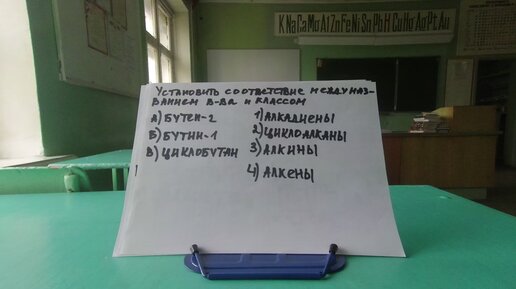 K Na Ca Mg Al Zn Fe Ni Sn Pb H Cu Hg Ag Pt Au
УСТАНОВИТЬ СООТВЕТСТВИЕ МЕЖДУ НАЗ-
ВАНИЕМ В-ВА И КЛАССОМ
А) БУТЕН-2 1) АЛКАДИЕНЫ
Б) БУТИН-1 2) ЦИКЛОАЛКАНЫ
В) ЦИКЛОБУТАН 3) АЛКИНЫ
4) АЛКЕНЫ